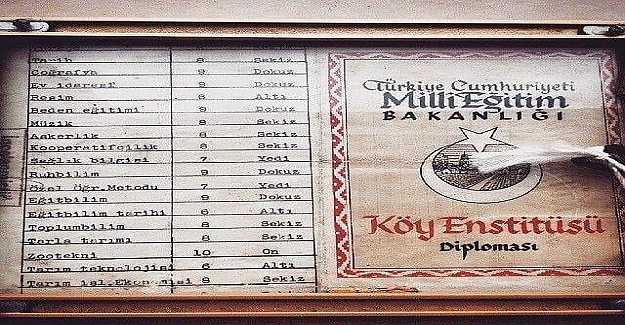 Tarih 8 Sekiz
Coğrafya 9 Dokuz
Ev idaresi 9 Dokuz
Resim 6 Altı
Beden eğitimi 9 Dokuz
Müzik 8 Sekiz
Askerlik 8 Sekiz
Kooperatifcilik 8 Sekiz
Sağlık bilgisi 7 Yedi
Ruhbilim 9 Dokuz
Özel Öğr.Metodu 7 Yedi
Eğitbilim 9 Dokuz
Eğitbilim tarihi 6 Altı
Toplumbilim 8 Sekiz
Tarla tarımı 8 Sekiz
Zootekni 10 On
Tarım teknolojisi 6 Altı
Tarım işl.Ekonomisi 8 Sekiz
Türkiye Cumhuriyeti
Milli Eğitim
BAKANLIĞI
Köy Enstitüsü
Diploması